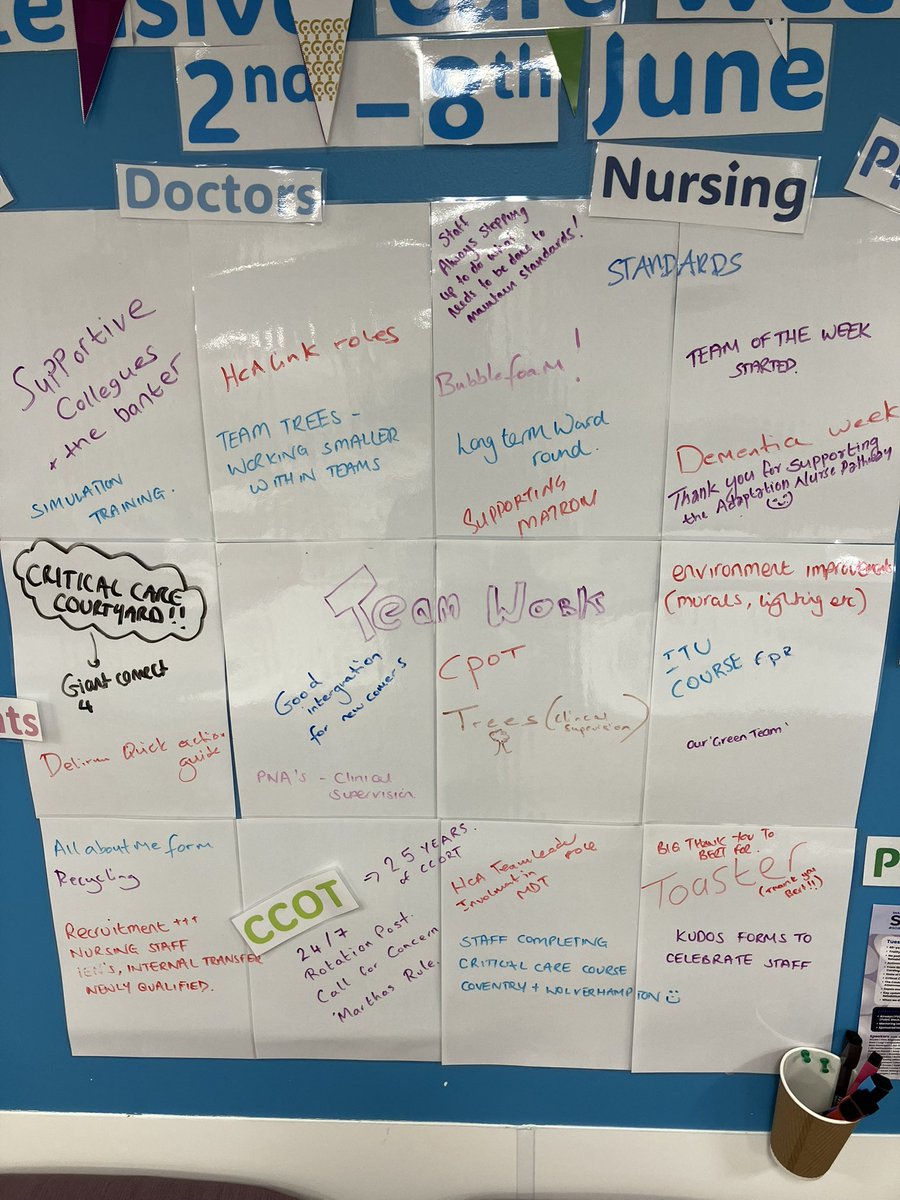 ensive Care Week
2nd – 8th June
Doctors
Nursing
Supportive
Collegues
+ the banter
SIMULATION
TRAINING.
HCA Link roles
TEAM TREES -
WORKING SMALLER
WITHIN TEAMS
Staff
Always stepping
up to do what
needs to be done to
maintain standards!
Bubble foam!
Long term Ward
round.
SUPPORTING
MATRON
STANDARDS
TEAM OF THE WEEK
STARTED.
Dementia week
Thank you for supporting
the Adaptation Nurse Pathway
CRITICAL CARE
COURTYARD!!
Giant connect
4
Delirium Quick action
guide
Team Work
Good
intergration
for new comers
PNA's - Clinical
Supervision.
CPOT
Trees (clinical
supervision)
environment improvements
(murals, lighting etc)
ITU
COURSE FPR
Our 'Green Team'
nts
All about Me form
Recycling
Recruitment +++
NURSING STAFF
IEN'S, INTERNAL TRANSFER
NEWLY QUALIFIED.
CCOT
⇒ 25 YEARS.
of CCORT
24/7
Rotation Post.
Call for Concern
'Marthas Rule.
HCA Team Leader
role
Involvment in
MDT
STAFF COMPLETING
CRITICAL CARE COURSE
COVENTRY + WOLVERHAMPTON
BIG THANK YOU TO
BERT FOR.
Toaster
(Thank you
Bert!!)
KUDOS FORMS TO
CELEBRATE STAFF
P